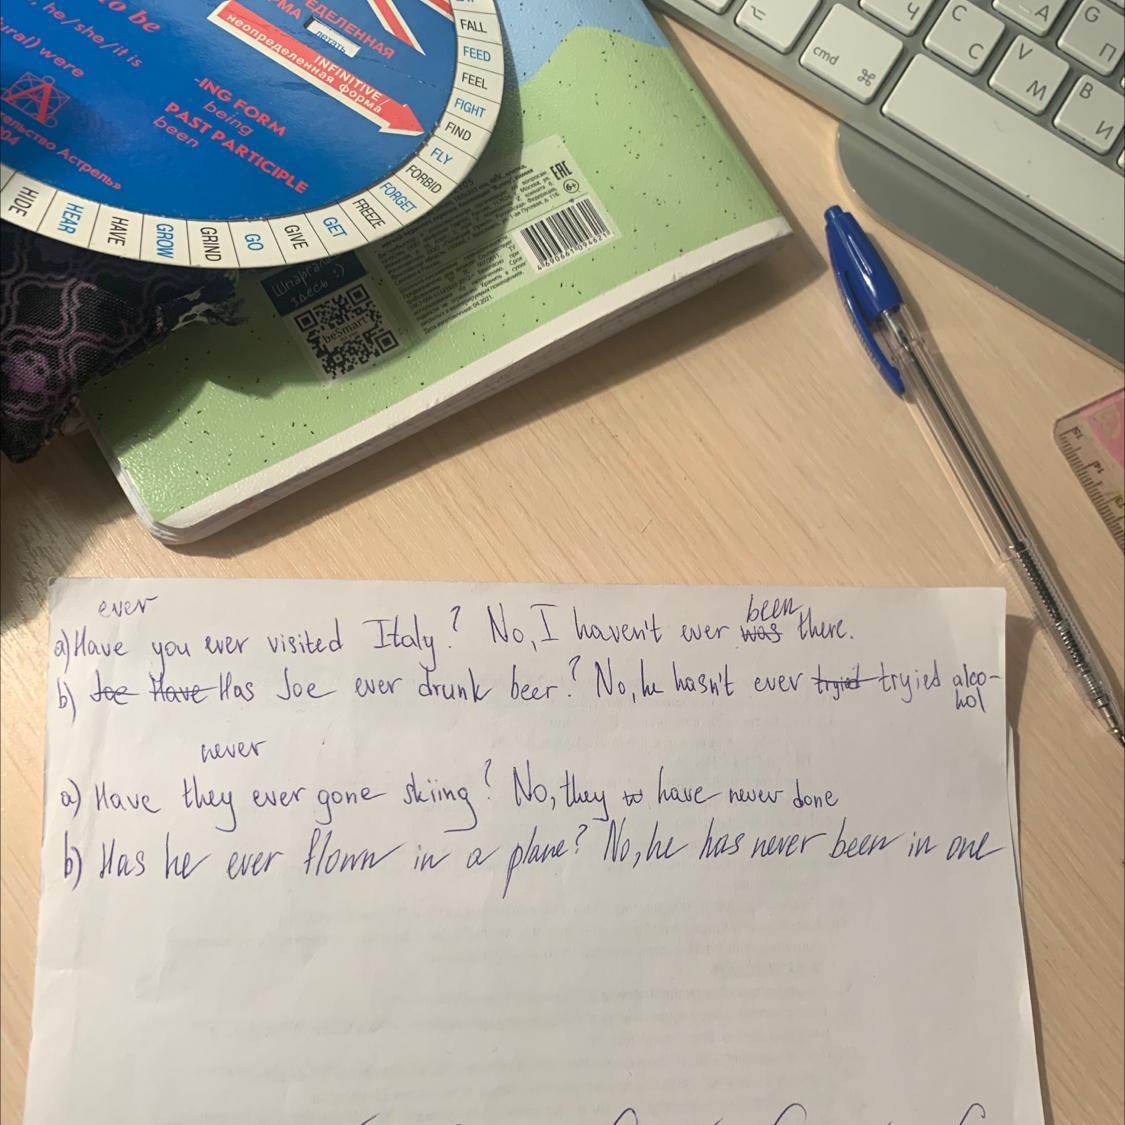 to be
he/she/it is
were
-ING FORM
being
PAST PARTICIPLE
been
ЕДЕЛЕННАЯ
летать
неопределенная
INFINITIVE/
неопределенная форма
Астрель»
FALL
FEED
FEEL
FIGHT
FIND
FLY
FORBID
FORGET
FREEZE
GET
GIVE
GO
GRIND
GROW
HAVE
HEAR
HIDE
EAC
6+
Шпаргалка
здесь :)
beSmart
4 690661 094621
cmd ⌘
⌥
Ч
C С
V М
B И
A
G П
ever
a) Have you ever visited Italy? No, I haven't ever was been there.
b) Joe Have Has Joe ever drunk beer? No, he hasn't ever tryied tryied alco-
hol
never
a) Have they ever gone skiing? No, they have never done
b) Has he ever flown in a plane? No, he has never been in one